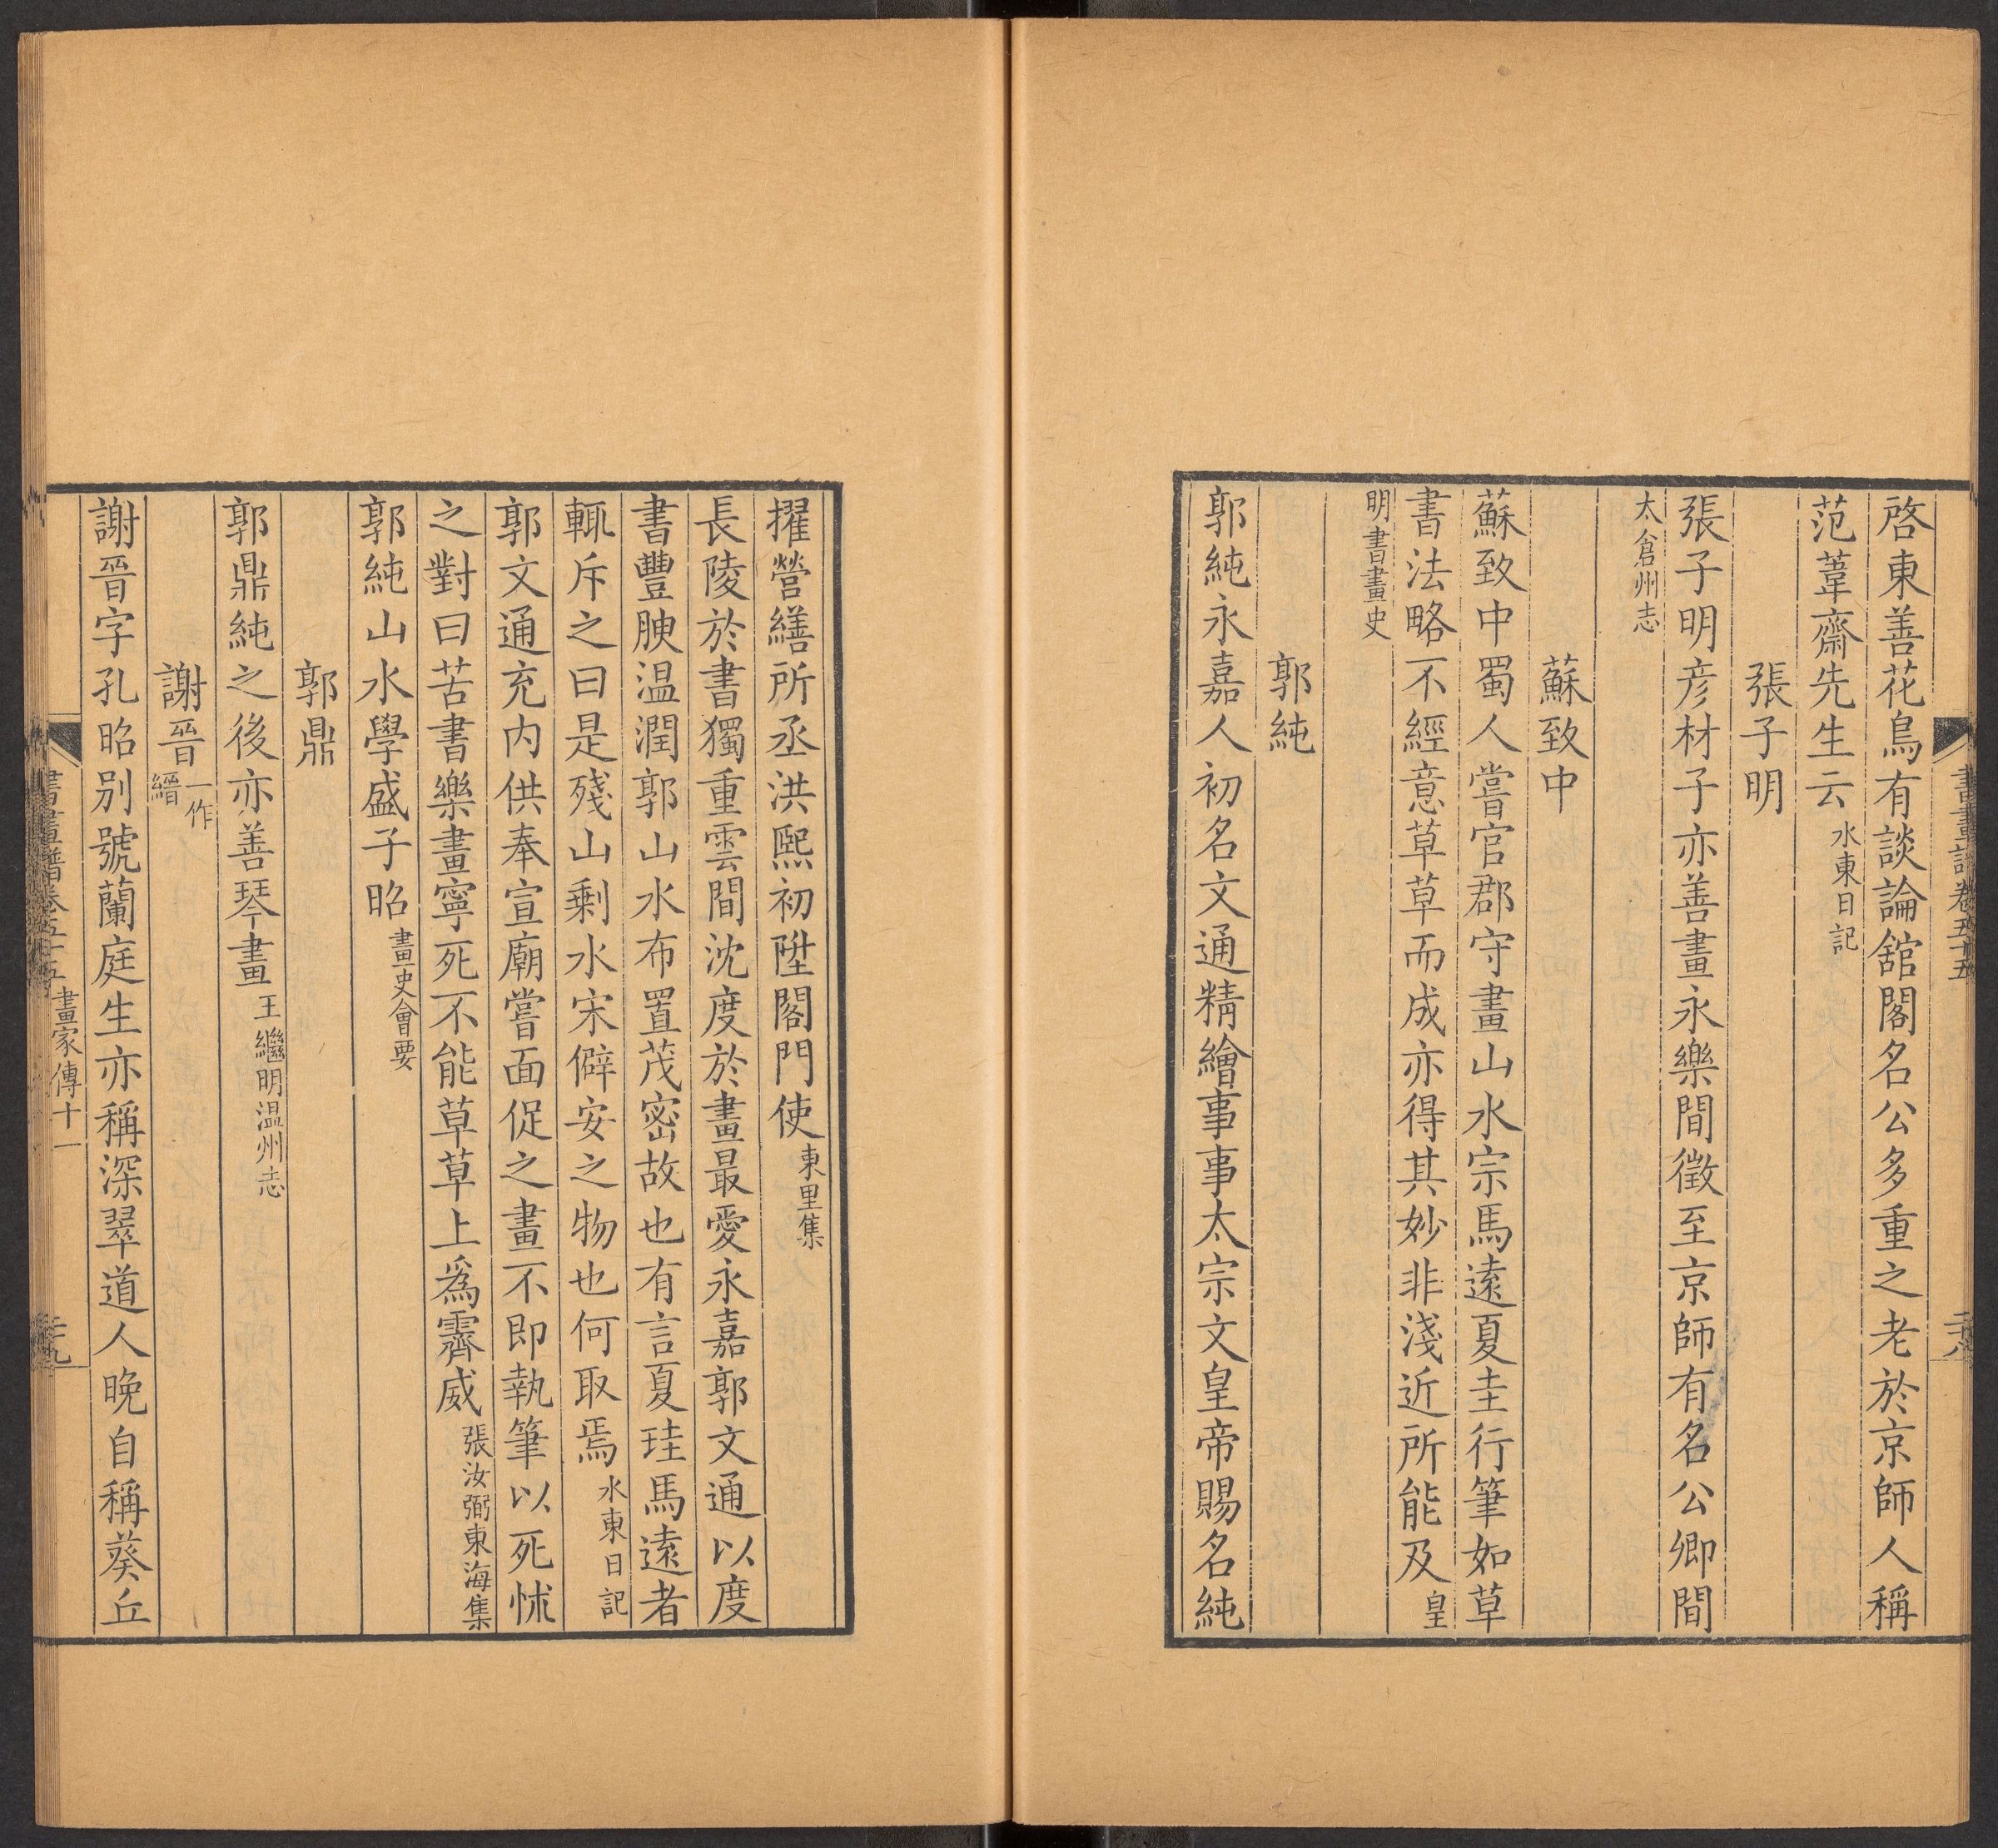 書畫譜卷五十五
二十八
啓東善花鳥有談論舘閣名公多重之老於京師人稱
范葦齋先生云水東日記
張子明
張子明彦材子亦善畫永樂間徵至京師有名公卿間
太倉州志
蘇致中
蘇致中蜀人嘗官郡守畫山水宗馬遠夏圭行筆如草
書法略不經意草草而成亦得其妙非淺近所能及皇
明書畫史
郭純
郭純永嘉人初名文通精繪事事太宗文皇帝賜名純
擢營繕所丞洪熙初陞閣門使東里集
長陵於書獨重雲間沈度於畫最愛永嘉郭文通以度
書豐腴温潤郭山水布置茂密故也有言夏珪馬遠者
輒斥之曰是殘山剩水宋僻安之物也何取焉水東日記
郭文通充内供奉宣廟嘗面促之畫不即執筆以死怵
之對曰苦書樂畫寧死不能草草上爲霽威張汝弼東海集
郭純山水學盛子昭畫史會要
郭鼎
郭鼎純之後亦善琴畫王繼明温州志
謝晉一作縉
謝晉字孔昭別號蘭庭生亦稱深翠道人晚自稱葵丘
書畫譜卷五十五 畫家傳十一
二十九